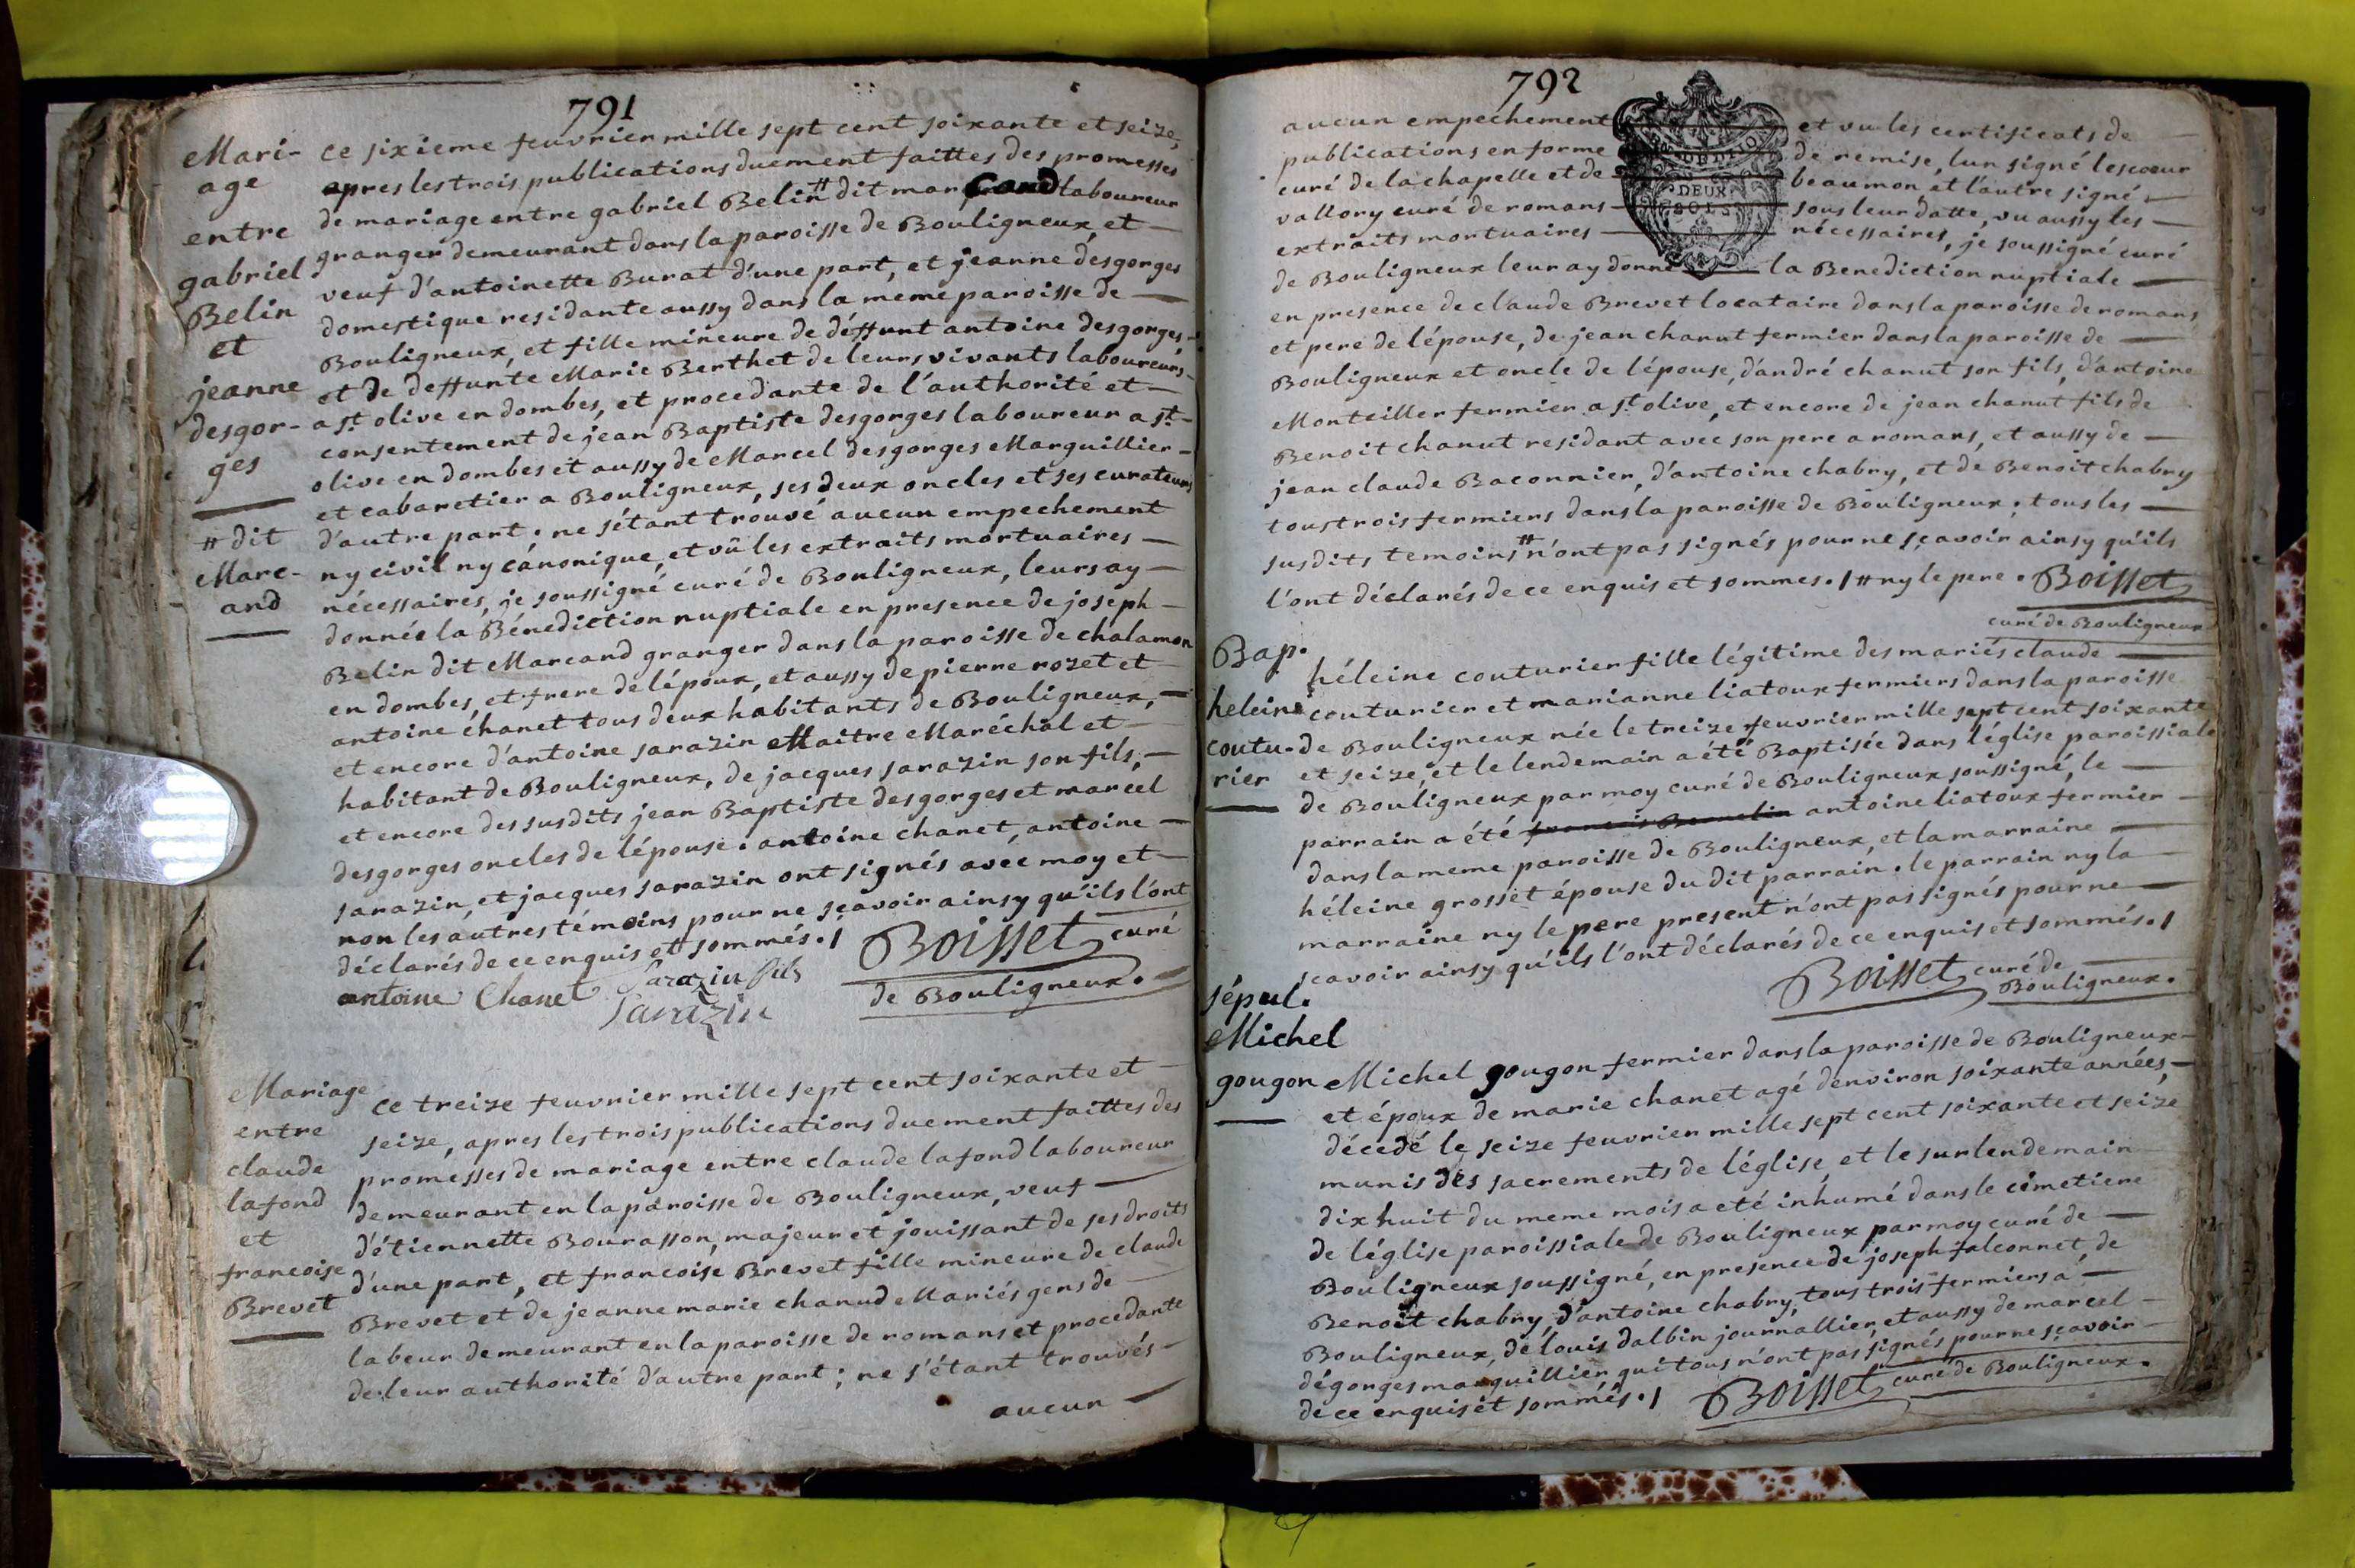 791
Mari-
age
entre
gabriel
Belin
et
jeanne
desgor-
ges
# dit
Marc-
and
ce sixieme feuvrier mille sept cent soixante et seize,
apres les trois publications duement faittes des promesses
de mariage entre gabriel Belin # dit marcand laboureur
granger demeurant dans la paroisse de Bouligneux, et
veuf d'antoinette Burat d'une part, et jeanne desgorges
domestique residante aussy dans la meme paroisse de
Bouligneux, et fille mineure de déffunt antoine desgorges,
et de deffunte Marie Berthet de leurs vivants laboureurs
a st olive en dombes, et procedante de l'authorité et
consentement de jean Baptiste desgorges laboureur a st
olive en dombes et aussy de Marcel desgorges Marguillier
et cabaretier a Bouligneux, ses deux oncles et ses curateurs
d'autre part. ne s'étant trouvé aucun empechement
ny civil ny canonique, et vû les extraits mortuaires
nécessaires, je soussigné curé de Bouligneux, leurs ay
donnée la Bénediction nuptiale en presence de joseph
Belin dit Marcand granger dans la paroisse de chalamon
en dombes, et frere de lépoux, et aussy de pierre rozet et
antoine chanet tous deux habitants de Bouligneux,
et encore d'antoine sarazin Maitre Maréchal et
habitant de Bouligneux, de jacques sarazin son fils,
et encore des susdits jean Baptiste desgorges et marcel
desgorges oncles de lépouse. antoine chanet, antoine
sarazin, et jacques sarazin ont signés avéc moy et
non les autres témoins pour ne sçavoir ainsy qu'ils l'ont
déclarés de ce enquis et sommés./. Boisset curé
de Bouligneux.
antoine Chanet Sarazin fils
Sarazin
Mariage
entre
claude
lafond
et
francoise
Brevet
ce treize feuvrier mille sept cent soixante et
seize, apres les trois publications duement faittes des
promesses de mariage entre claude lafond laboureur
demeurant en la paroisse de Bouligneux, veuf
d'étiennette Bourasson, majeur et jouissant de ses droits
d'une part, et francoise Brevet fille mineure de claude
Brevet et de jeanne marie chanud Mariés gens de
labeur demeurant en la paroisse de romans et procedante
de leur authorité d'autre part; ne s'étant trouvés
aucun
792
EN. DE DIJON
DEUX
SOLS
aucun empechement et vu les certificats de
publications en forme de remise, lun signé lescoeur
curé de la chapelle et de beaumon et l'autre signé
vallory curé de romans sous leur datte, vu aussy les
extraits mortuaires nécessaires, je soussigné curé
de Bouligneux leur ay donné la Benediction nuptiale
en presence de claude Brevet locataire dans la paroisse de romans
et pere de lépouse, de jean chanut fermier dans la paroisse de
Bouligneux et oncle de lépouse, d'andré chanut son fils, d'antoine
Monteiller fermier a st olive, et encore de jean chanut fils de
Benoit chanut residant avec son pere a romans, et aussy de
jean claude Baconnier, d'antoine chabry, et de Benoit chabry
tous trois fermiers dans la paroisse de Bouligneux. tous les
susdits temoins # n'ont pas signés pour ne sçavoir ainsy qu'ils
l'ont déclarés de ce enquis et sommes./ # ny le pere. Boisset
curé de Bouligneux
Bap.
heleine
coutu-
rier
héleine couturier fille légitime des mariés claude
couturier et marianne liatoux fermiers dans la paroisse
de Bouligneux née le treize feuvrier mille sept cent soixante
et seize, et le lendemain a été Baptisée dans l'église paroissiale
de Bouligneux par moy curé de Bouligneux soussigné, le
parrain a été antoine liatoux fermier
dans la meme paroisse de Bouligneux, et la marraine
héleine grosset épouse du dit parrain. le parrain ny la
marraine ny le pere present n'ont pas signés pour ne
scavoir ainsy qu'ils l'ont déclarés de ce enquis et sommés./
Boisset curé de
Bouligneux.
sépul.
Michel
gougon
Michel gougon fermier dans la paroisse de Bouligneux
et époux de marie chanet agé denviron soixante années,
décedé le seize feuvrier mille sept cent soixante et seize
munis des sacrements de léglise, et le surlendemain
dix huit du meme mois a eté inhumé dans le cimetiere
de léglise paroissiale de Bouligneux par moy curé de
Bouligneux soussigné, en presence de joseph falconnet, de
Benoit chabry, d'antoine chabry, tous trois fermiers a
Bouligneux, de louis dalbin journallier, et aussy de marcel
dégorges marguillier qui tous n'ont pas signés pour ne sçavoir
de ce enquis et sommés./ Boisset curé de Bouligneux.